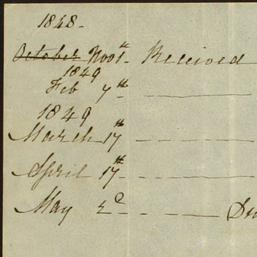 1848-
October Novr - Received
1849
Feb 7th -
1849
March 17th
April 17th -
May 2d -